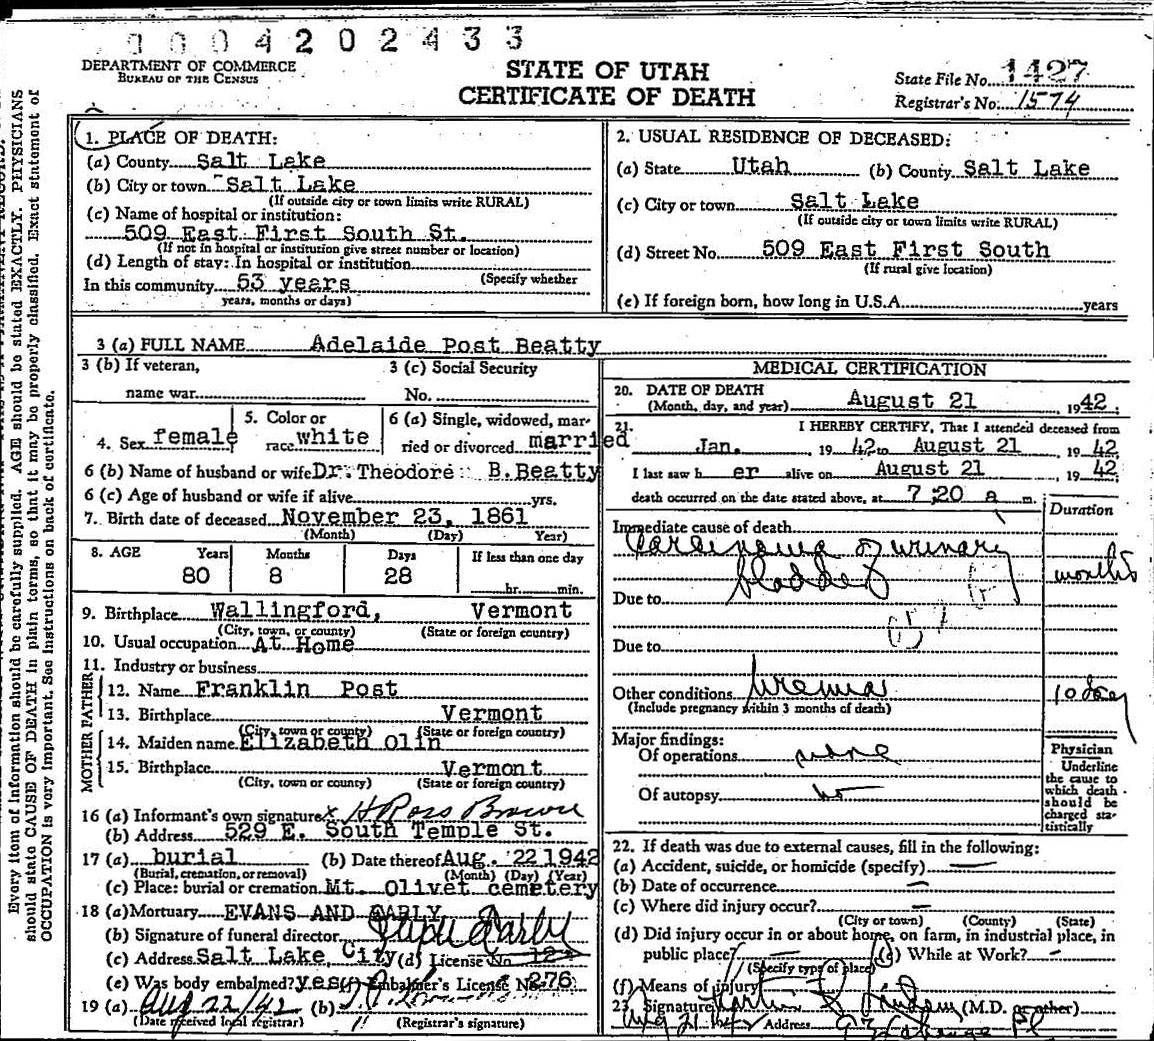 0004202433
DEPARTMENT OF COMMERCE
BUREAU OF THE CENSUS
STATE OF UTAH
CERTIFICATE OF DEATH
State File No. 1427
Registrar's No. 1574
Every item of information should be carefully supplied. AGE should be stated EXACTLY. PHYSICIANS
should state CAUSE OF DEATH in plain terms, so that it may be properly classified. Exact statement of
OCCUPATION is very important. See instructions on back of certificate.
1. PLACE OF DEATH:
(a) County Salt Lake
(b) City or town Salt Lake
(If outside city or town limits write RURAL)
(c) Name of hospital or institution:
509 East First South St.
(If not in hospital or institution give street number or location)
(d) Length of stay: In hospital or institution
(Specify whether
In this community 53 years
years, months or days)
2. USUAL RESIDENCE OF DECEASED:
(a) State Utah (b) County Salt Lake
(c) City or town Salt Lake
(If outside city or town limits write RURAL)
(d) Street No. 509 East First South
(If rural give location)
(e) If foreign born, how long in U.S.A. years
3 (a) FULL NAME Adelaide Post Beatty
3 (b) If veteran,
name war
3 (c) Social Security
No.
4. Sex female
5. Color or
race white
6 (a) Single, widowed, mar-
ried or divorced married
6 (b) Name of husband or wife Dr. Theodore B. Beatty
6 (c) Age of husband or wife if alive yrs.
7. Birth date of deceased November 23, 1861
(Month) (Day) Year)
8. AGE Years Months Days If less than one day
80 8 28 hr. min.
9. Birthplace Wallingford, Vermont
(City, town, or county) (State or foreign country)
10. Usual occupation At Home
11. Industry or business
FATHER
12. Name Franklin Post
13. Birthplace Vermont
(City, town or county) (State or foreign country)
MOTHER
14. Maiden name Elizabeth Olin
15. Birthplace Vermont
(City, town or county) (State or foreign country)
16 (a) Informant's own signature x H Ross Brown
(b) Address 529 E. South Temple St.
17 (a) burial (b) Date thereof Aug. 22 1942
(Burial, cremation, or removal) (Month) (Day) (Year)
(c) Place: burial or cremation Mt. Olivet cemetery
18 (a) Mortuary EVANS AND EARLY
(b) Signature of funeral director
(c) Address Salt Lake, City (d) License No. 12
(e) Was body embalmed? yes (f) Embalmer's License No. 276
19 (a) Aug 22/42 (b)
(Date received local registrar) (Registrar's signature)
MEDICAL CERTIFICATION
20. DATE OF DEATH
(Month, day, and year) August 21, 1942.
21. I HEREBY CERTIFY, That I attended deceased from
Jan. 19 42 to August 21 1942
I last saw h er alive on August 21, 1942
death occurred on the date stated above, at 7:20 a m.
Duration
Immediate cause of death
Carcinoma of urinary
bladder months
Due to
Due to
Other conditions Uremia 10 days
(Include pregnancy within 3 months of death)
Major findings:
Of operations none
Of autopsy no
Physician
Underline
the cause to
which death
should be
charged sta-
tistically
22. If death was due to external causes, fill in the following:
(a) Accident, suicide, or homicide (specify) —
(b) Date of occurrence —
(c) Where did injury occur? —
(City or town) (County) (State)
(d) Did injury occur in or about home, on farm, in industrial place, in
public place? — (e) While at Work? -
(Specify type of place)
(f) Means of injury
23. Signature (M.D. or other)
Aug 21 1942 Address